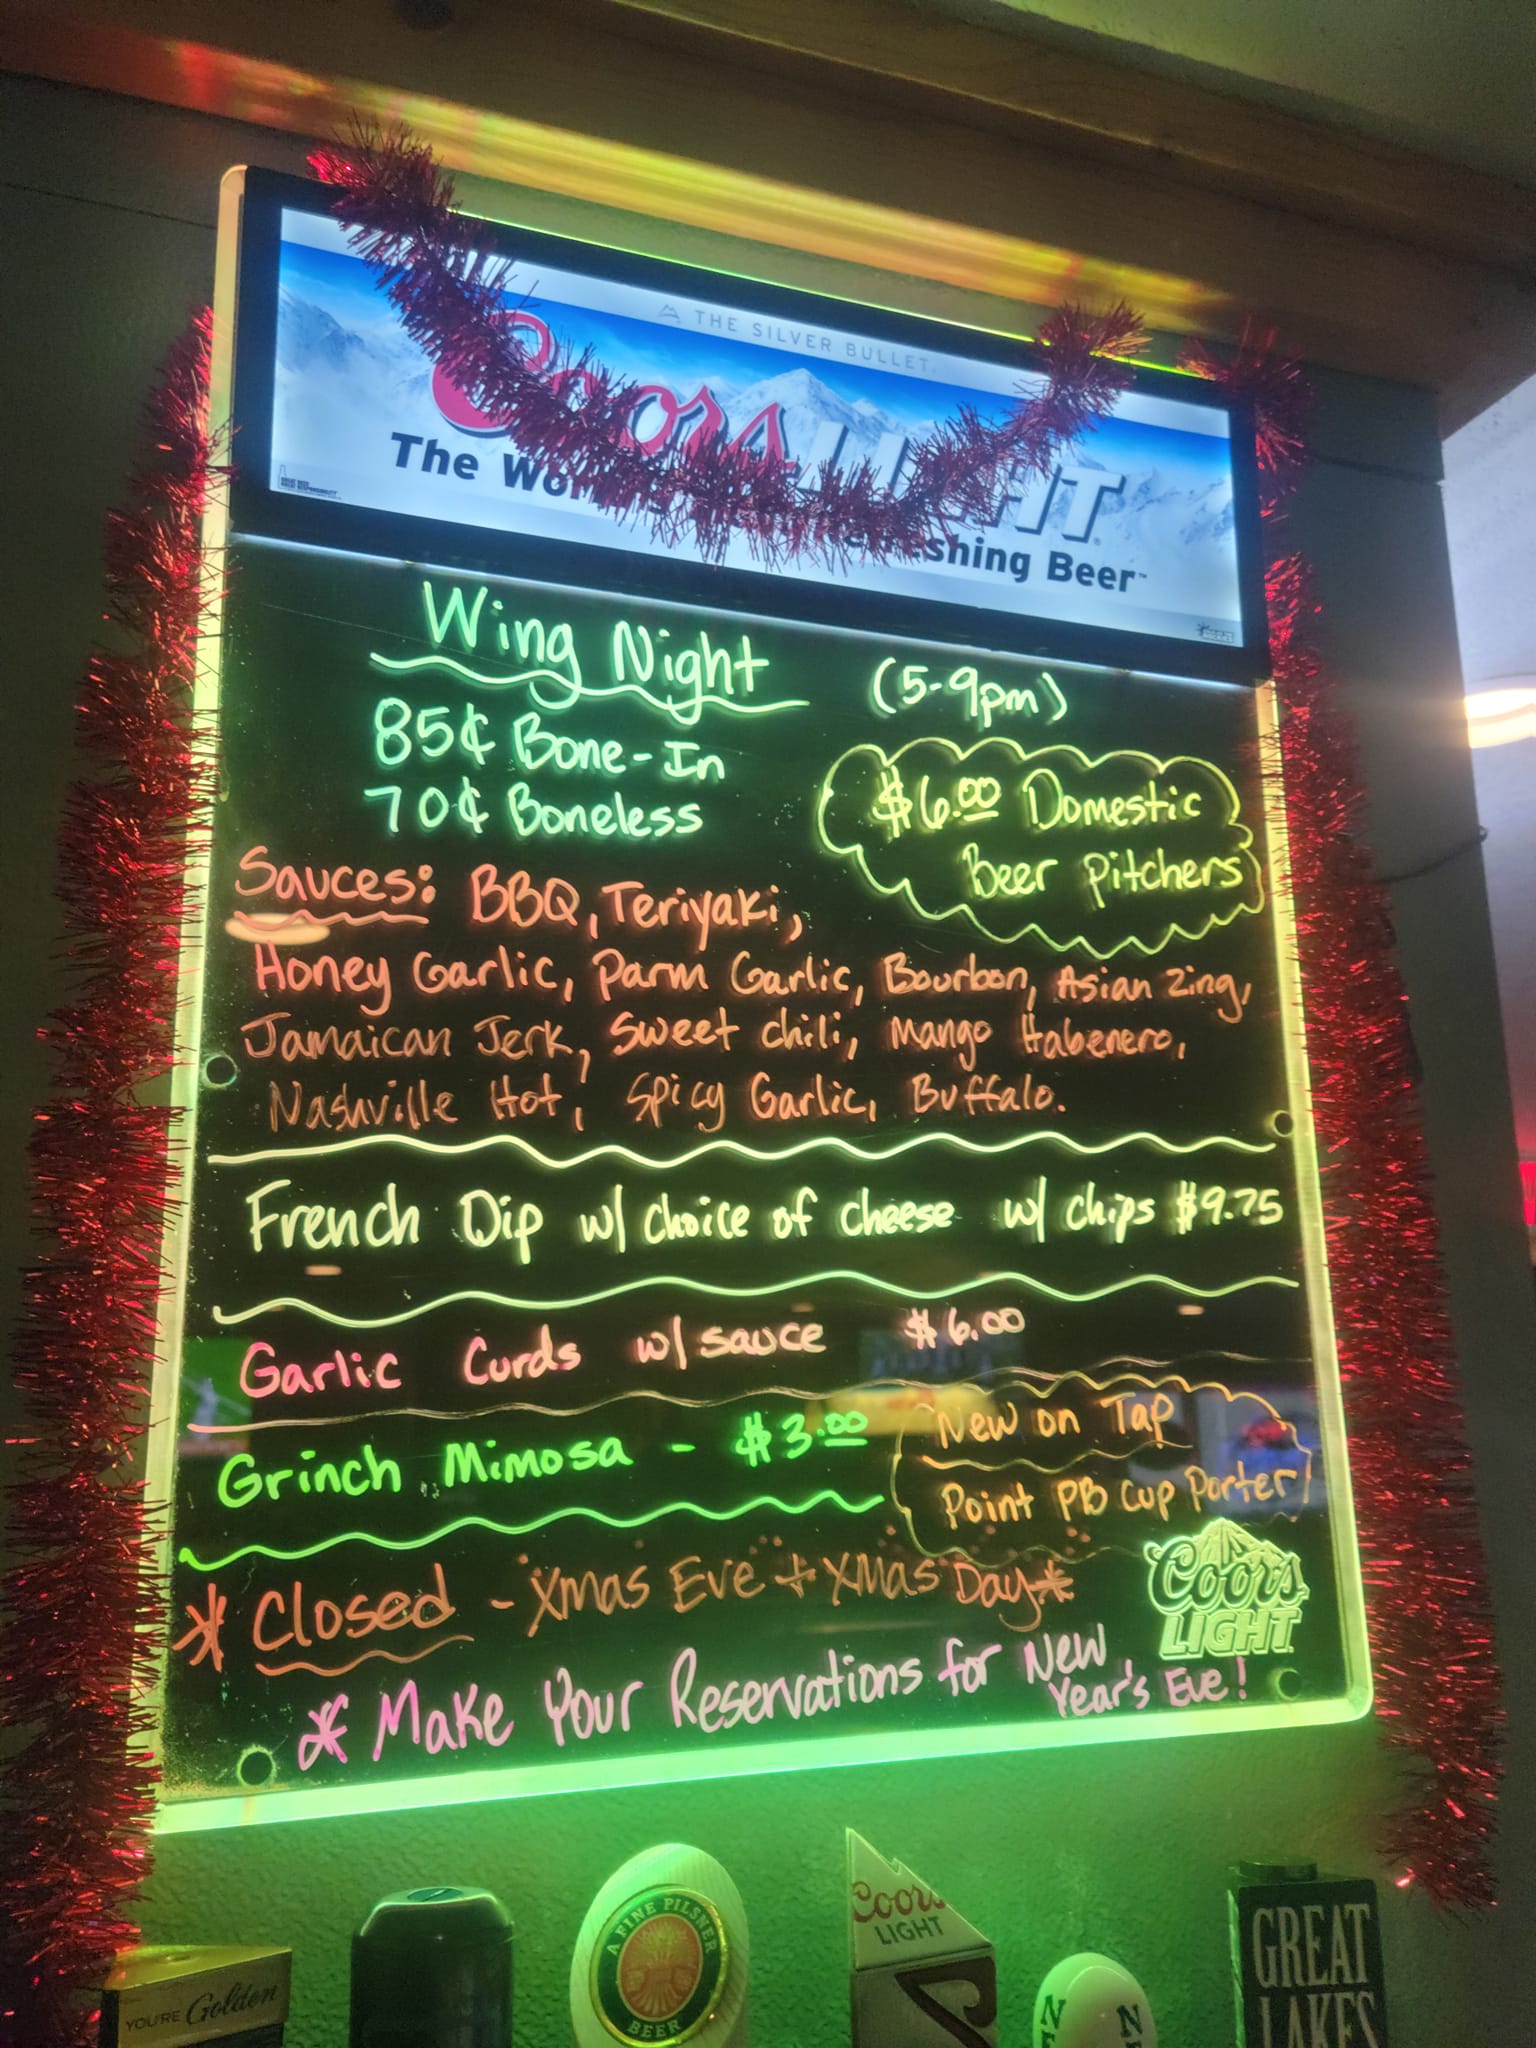 THE SILVER BULLET.
Coors LIGHT
The World's Refreshing Beer™
Wing Night (5-9pm)
85¢ Bone-In
70¢ Boneless
$6.00 Domestic
Beer Pitchers
Sauces: BBQ, Teriyaki,
Honey Garlic, Parm Garlic, Bourbon, Asian Zing,
Jamaican Jerk, Sweet Chili, Mango Habenero,
Nashville Hot, Spicy Garlic, Buffalo.
French Dip w/ choice of cheese w/ chips $9.75
Garlic Curds w/ sauce $6.00
Grinch Mimosa - $3.00
New on Tap
Point PB Cup Porter
* Closed - Xmas Eve + Xmas Day *
Coors
LIGHT
* Make Your Reservations for New
Year's Eve!
YOU'RE Golden
A FINE PILSNER
BEER
Coors
LIGHT
GREAT
LAKES